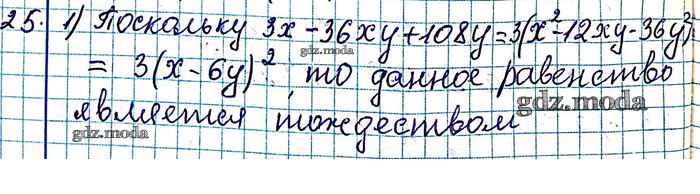 25. 1) Поскольку 3x - 36xy + 108y = 3(x² - 12xy - 36y²) =
gdz.moda
= 3(x - 6y)², то данное равенство
gdz.moda
является тождеством
gdz.moda